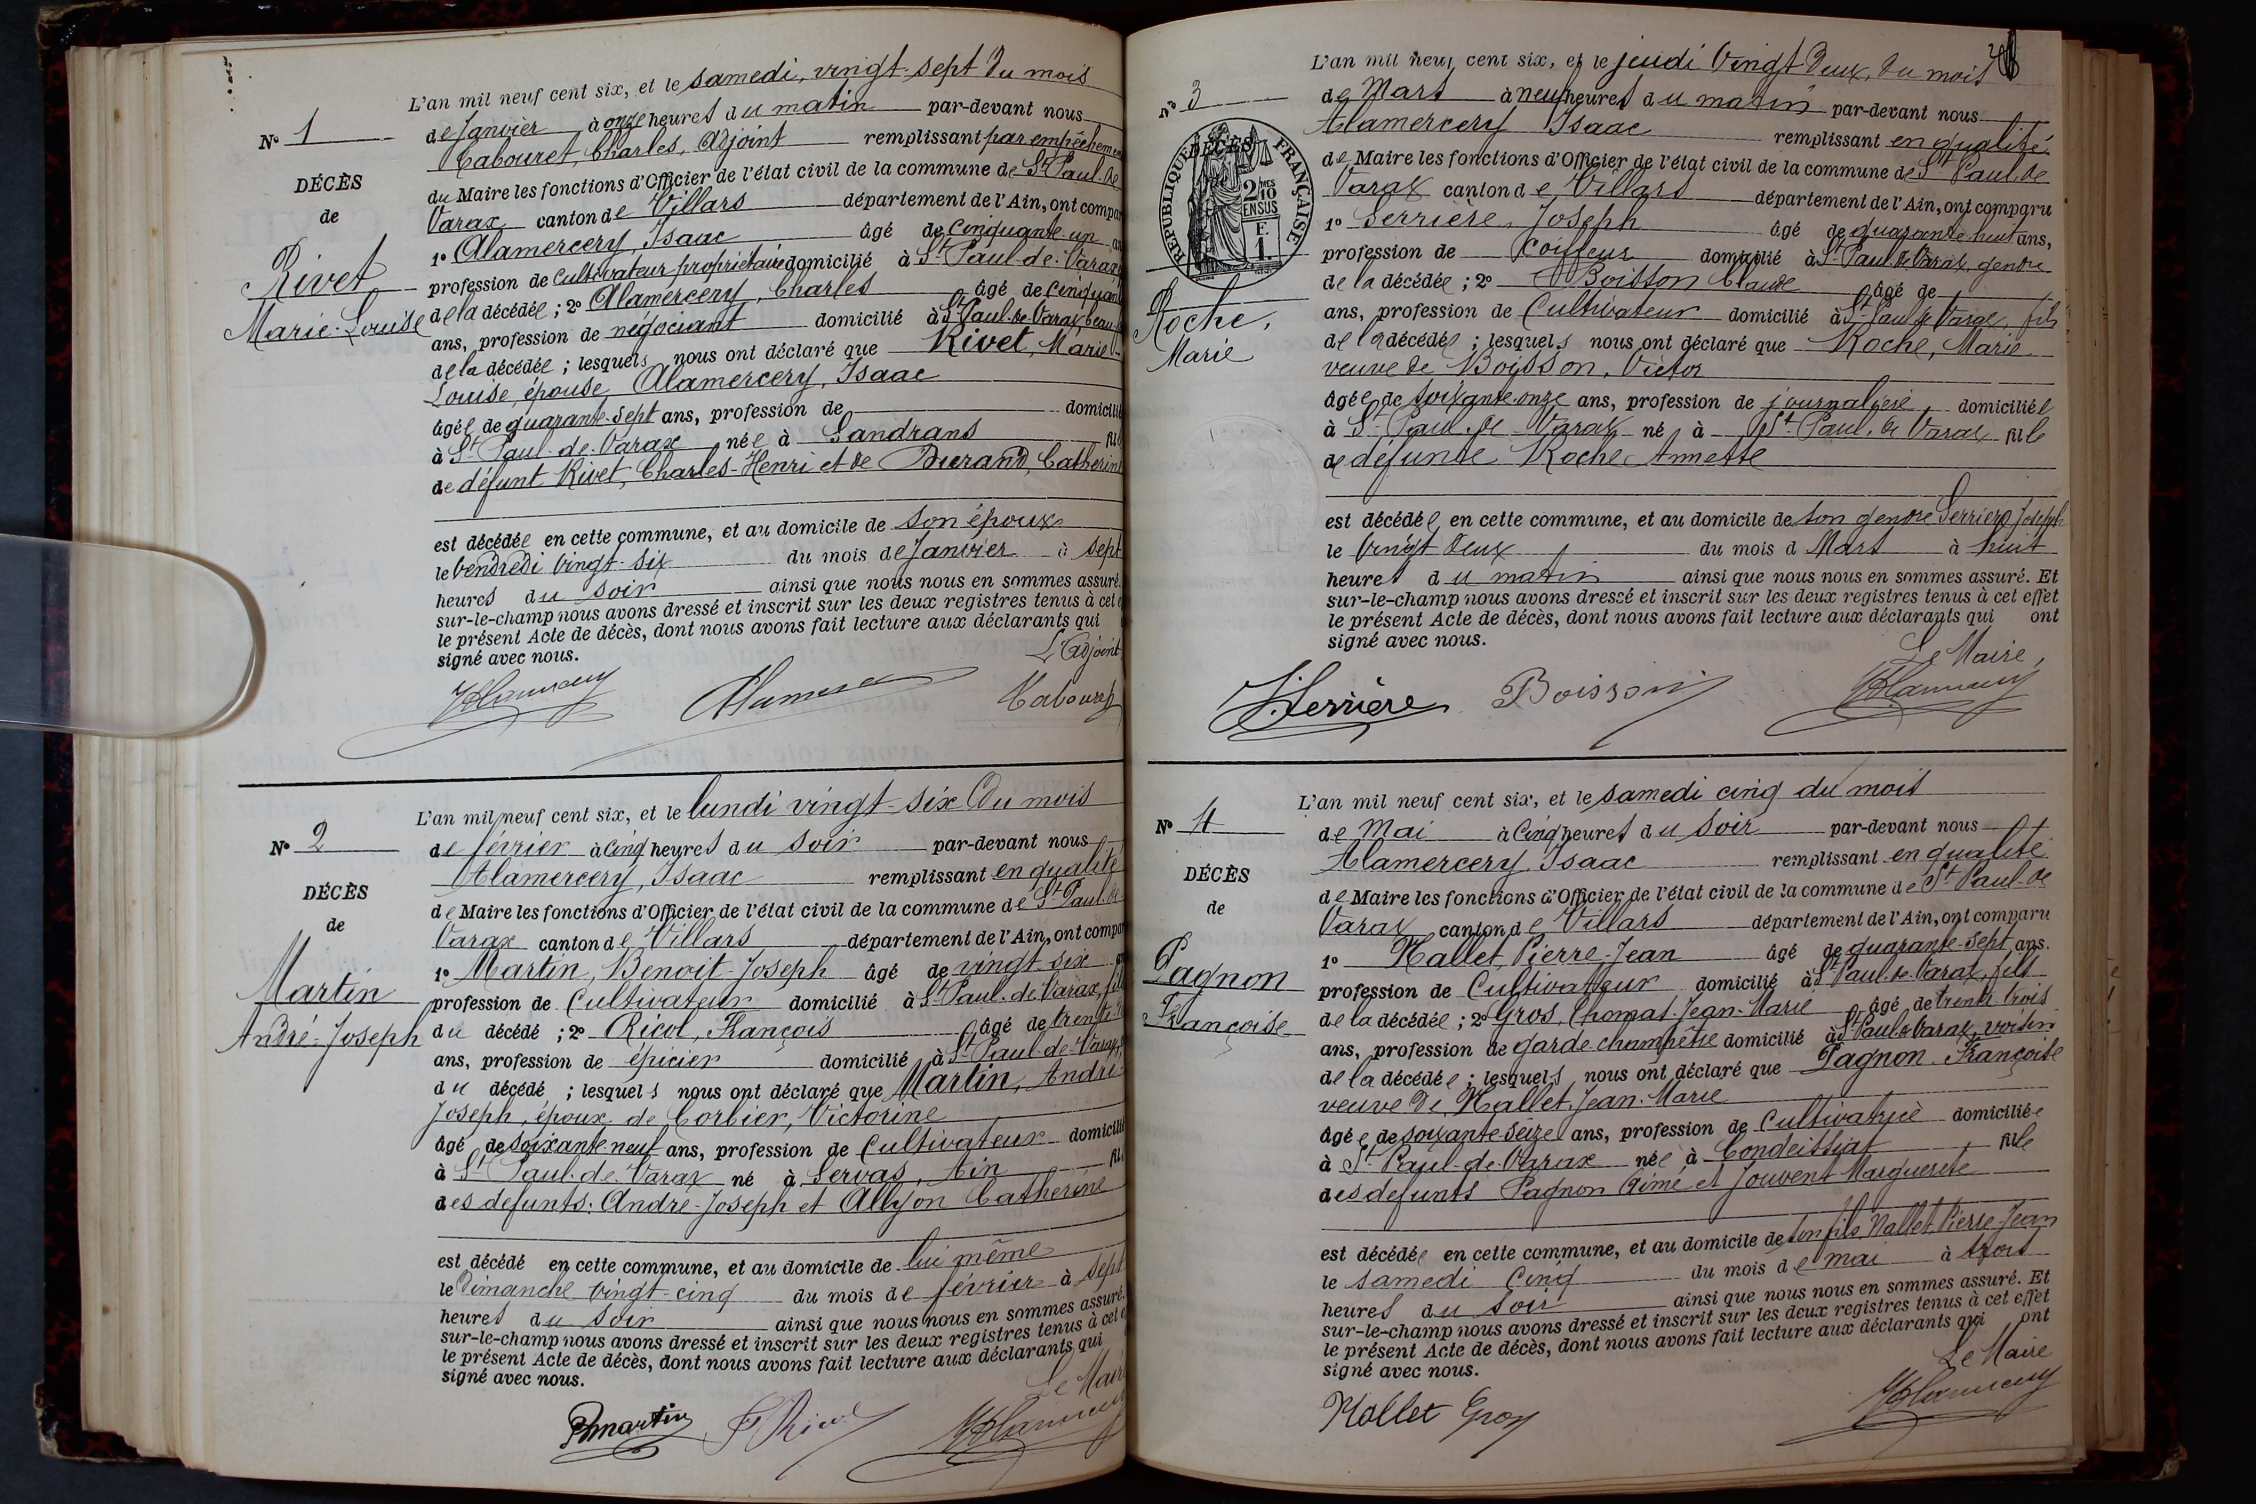 L'an mil neuf cent six, et le samedi, vingt-sept du mois
de Janvier à onze heures du matin par-devant nous
Cabouret, Charles, Adjoint remplissant par empêchement
du Maire les fonctions d'Officier de l'état civil de la commune de St Paul-de
Varax canton de Villars département de l'Ain, ont compar
1o Alamercery, Isaac âgé de cinquante un
profession de Cultivateur propriétaire domicilié à St Paul-de-Varax
de la décédée ; 2o Alamercery, Charles âgé de cinquan
ans, profession de négociant domicilié à St Paul-de-Varax beau
de la décédée ; lesquels nous ont déclaré que Rivet, Marie-
Louise, épouse Alamercery, Isaac
âgée de quarante-sept ans, profession de domicilié
à St Paul-de-Varax née à Sandrans fil
de défunt Rivet, Charles-Henri et de Durand, Catherine
est décédée en cette commune, et au domicile de son époux
le Vendredi vingt-six du mois de Janvier à sept
heures du soir ainsi que nous nous en sommes assuré.
sur-le-champ nous avons dressé et inscrit sur les deux registres tenus à cet e
le présent Acte de décès, dont nous avons fait lecture aux déclarants qui
signé avec nous.
L'Adjoint,
Cabouret
No 1
DÉCÈS
de
Rivet
Marie-Louise
L'an mil neuf cent six, et le lundi vingt-six du mois
de février à cinq heures du soir par-devant nous
Alamercery, Isaac remplissant en qualité
de Maire les fonctions d'Officier de l'état civil de la commune de St Paul-de
Varax canton de Villars département de l'Ain, ont compar
1o Martin, Benoit-Joseph âgé de vingt six
profession de Cultivateur domicilié à St Paul-de-Varax, fils
du décédé ; 2o Ricol, François âgé de trente
ans, profession de épicier domicilié à St Paul-de-Varax
du décédé ; lesquels nous ont déclaré que Martin, André-
Joseph, époux de Corbier, Victorine
âgé de soixante-neuf ans, profession de Cultivateur domicilié
à St Paul-de-Varax né à Servas, Ain fil
des defunts: André-Joseph et Allyon Catherine
est décédé en cette commune, et au domicile de lui même
le Dimanche vingt-cinq du mois de février à sept
heures du soir ainsi que nous nous en sommes assuré.
sur-le-champ nous avons dressé et inscrit sur les deux registres tenus à cet e
le présent Acte de décès, dont nous avons fait lecture aux déclarants qui
signé avec nous.
Le Maire
Bmartin F Ricol
No 2
DÉCÈS
de
Martin
André-Joseph
L'an mil neuf cent six, et le jeudi vingt deux, du mois
de Mars à neuf heures du matin par-devant nous
Alamercery Isaac remplissant en qualité
de Maire les fonctions d'Officier de l'état civil de la commune de St Paul-de
Varax canton de Villars département de l'Ain, ont comparu
1o Serrière, Joseph âgé de quarante huit ans,
profession de Coiffeur domicilié à St Paul de Varax, gendre
de la décédée ; 2o Boisson Claude âgé de
ans, profession de Cultivateur domicilié à St Paul de Varax, fils
de la décédée ; lesquels nous ont déclaré que Roche, Marie
veuve de Boisson, Victor
âgée de soixante-onze ans, profession de journalière domiciliée
à St Paul-de Varax né à St Paul-de Varax fille
de défunte Roche Annette
est décédée en cette commune, et au domicile de son gendre Serrière Joseph
le vingt deux du mois d Mars à huit
heures du matin ainsi que nous nous en sommes assuré. Et
sur-le-champ nous avons dressé et inscrit sur les deux registres tenus à cet effet
le présent Acte de décès, dont nous avons fait lecture aux déclarants qui ont
signé avec nous.
Le Maire,
J. Serrière Boisson
No 3
RÉPUBLIQUE FRANÇAISE
DÉCÈS
2/10
EN SUS
F.
1.
Roche,
Marie
L'an mil neuf cent six, et le samedi cinq du mois
de Mai à Cinq heures du soir par-devant nous
Alamercery, Isaac remplissant en qualité
de Maire les fonctions d'Officier de l'état civil de la commune de St Paul-de
Varax canton de Villars département de l'Ain, ont comparu
1o Nallet, Pierre-Jean âgé de quarante-sept ans.
profession de Cultivateur domicilié à St Paul-de-Varax, fils
de la décédée ; 2o Gros, Chomat-Jean-Marie âgé de trente trois
ans, profession de garde-champêtre domicilié à St Paul de Varax, voisin
de la décédée ; lesquels nous ont déclaré que Pagnon Françoise
veuve de, Nallet, Jean-Marie
âgée de soixante-seize ans, profession de Cultivatrice domiciliée
à St Paul-de-Varax née à Condeissiat fille
des defunts Pagnon Aimé et Jouvent Marguerete
est décédée en cette commune, et au domicile de son fils Nallet, Pierre-Jean
le samedi cinq du mois de mai à trois
heures du soir ainsi que nous nous en sommes assuré. Et
sur-le-champ nous avons dressé et inscrit sur les deux registres tenus à cet effet
le présent Acte de décès, dont nous avons fait lecture aux déclarants qui ont
signé avec nous.
Le Maire
Nallet Gros
No 4
DÉCÈS
de
Pagnon
Françoise